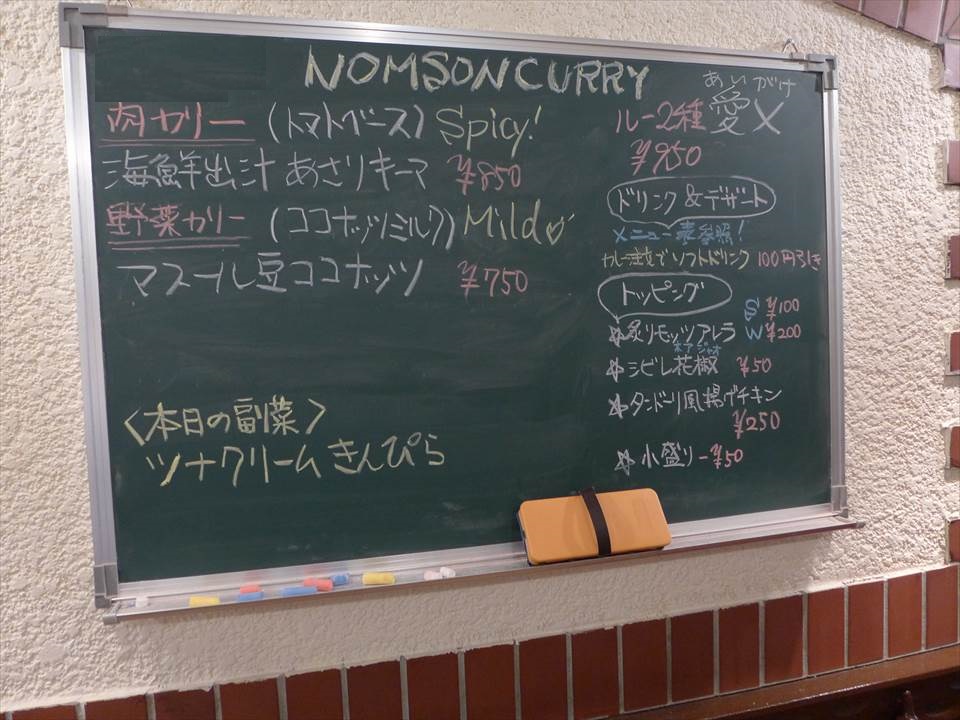 NOMSON CURRY
肉カリー (トマトベース) Spicy!
海鮮出汁 あさりキーマ ¥850
野菜カリー (ココナッツミルク) Mild♡
マスール豆ココナッツ ¥750
〈本日の副菜〉
ツナクリームきんぴら
あいがけ
ルー2種 愛メ
¥950
ドリンク&デザート
メニュー表参照!
カレー注文でソフトドリンク 100円引き
トッピング
S ¥100
☆炙りモッツアレラ W ¥200
ホアジャオ
☆シビレ花椒 ¥50
☆タンドーリ風揚げチキン
¥250
☆小盛り-¥50